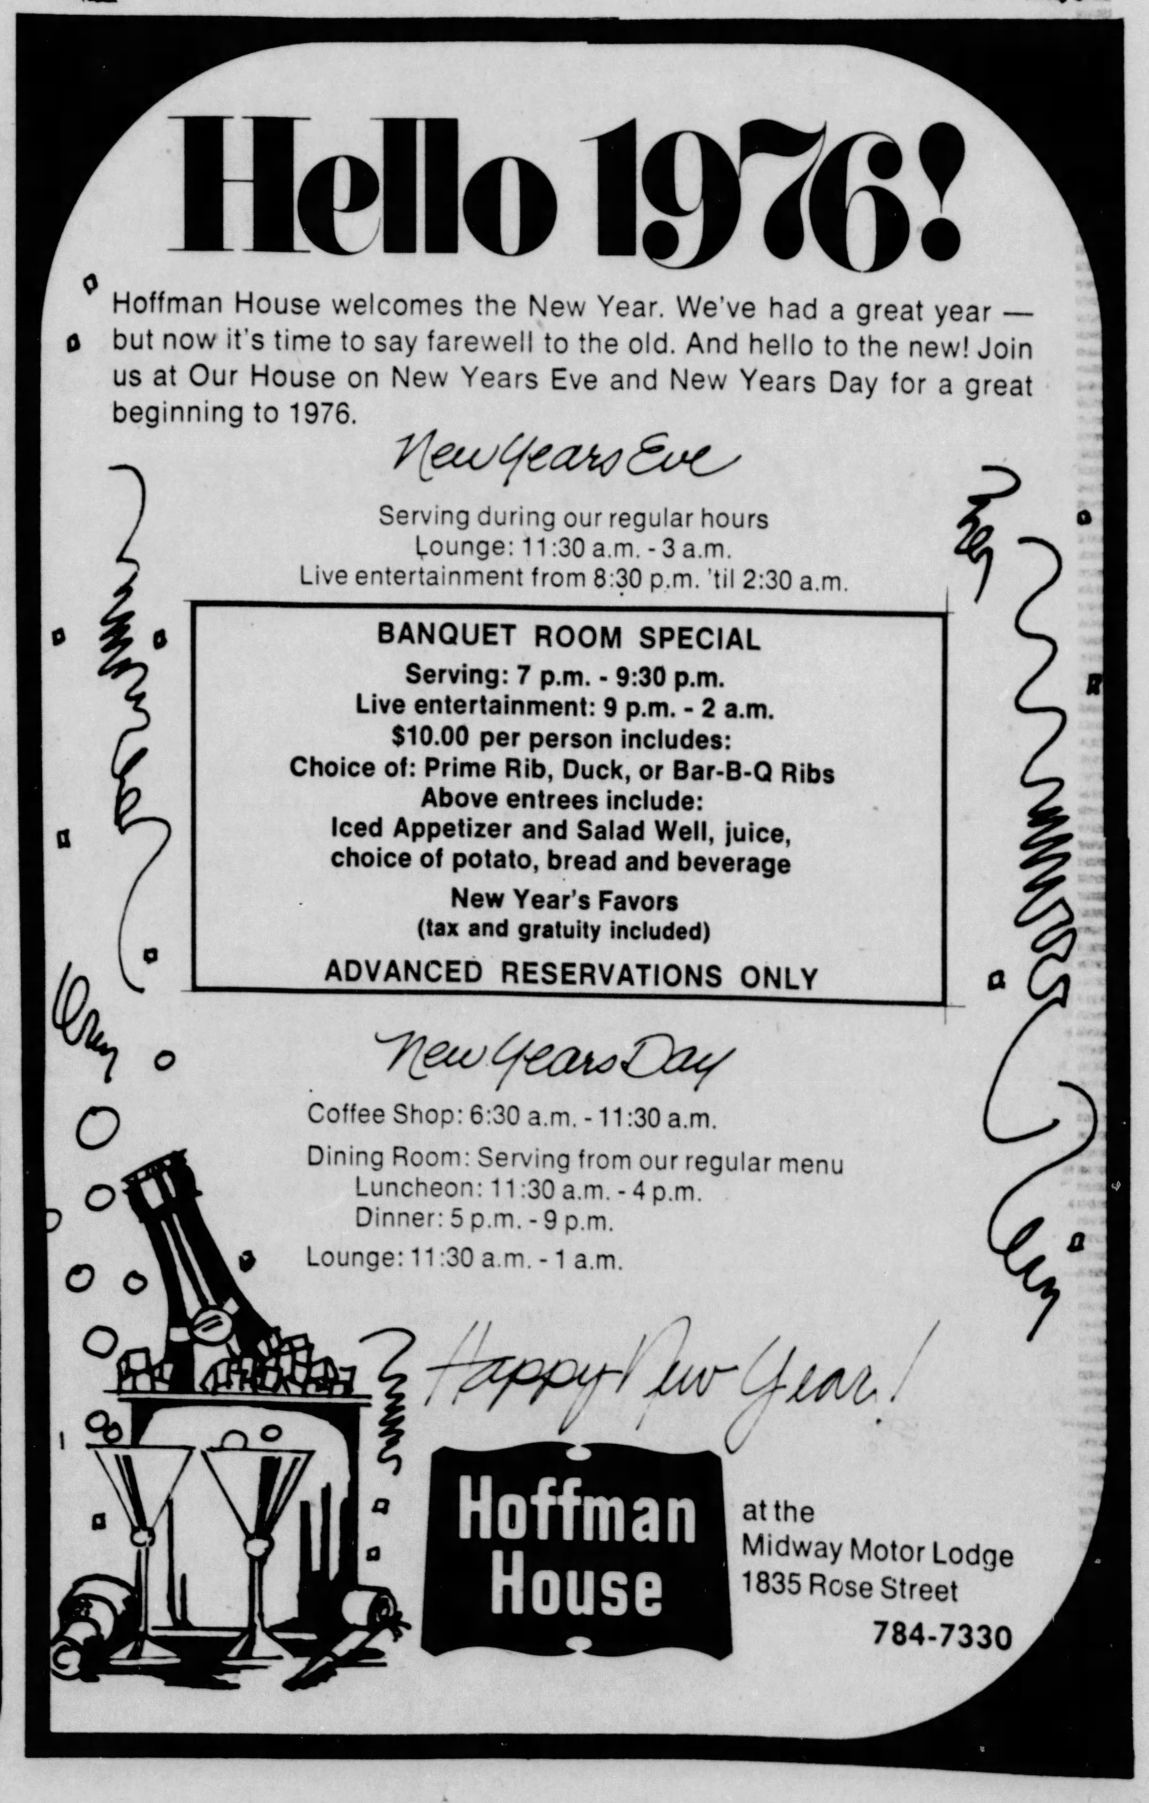 Hello 1976!
Hoffman House welcomes the New Year. We've had a great year —
but now it's time to say farewell to the old. And hello to the new! Join
us at Our House on New Years Eve and New Years Day for a great
beginning to 1976.
New Years Eve
Serving during our regular hours
Lounge: 11:30 a.m. - 3 a.m.
Live entertainment from 8:30 p.m. 'til 2:30 a.m.
BANQUET ROOM SPECIAL
Serving: 7 p.m. - 9:30 p.m.
Live entertainment: 9 p.m. - 2 a.m.
$10.00 per person includes:
Choice of: Prime Rib, Duck, or Bar-B-Q Ribs
Above entrees include:
Iced Appetizer and Salad Well, juice,
choice of potato, bread and beverage
New Year's Favors
(tax and gratuity included)
ADVANCED RESERVATIONS ONLY
New Years Day
Coffee Shop: 6:30 a.m. - 11:30 a.m.
Dining Room: Serving from our regular menu
Luncheon: 11:30 a.m. - 4 p.m.
Dinner: 5 p.m. - 9 p.m.
Lounge: 11:30 a.m. - 1 a.m.
Happy New Year!
Hoffman
House
at the
Midway Motor Lodge
1835 Rose Street
784-7330